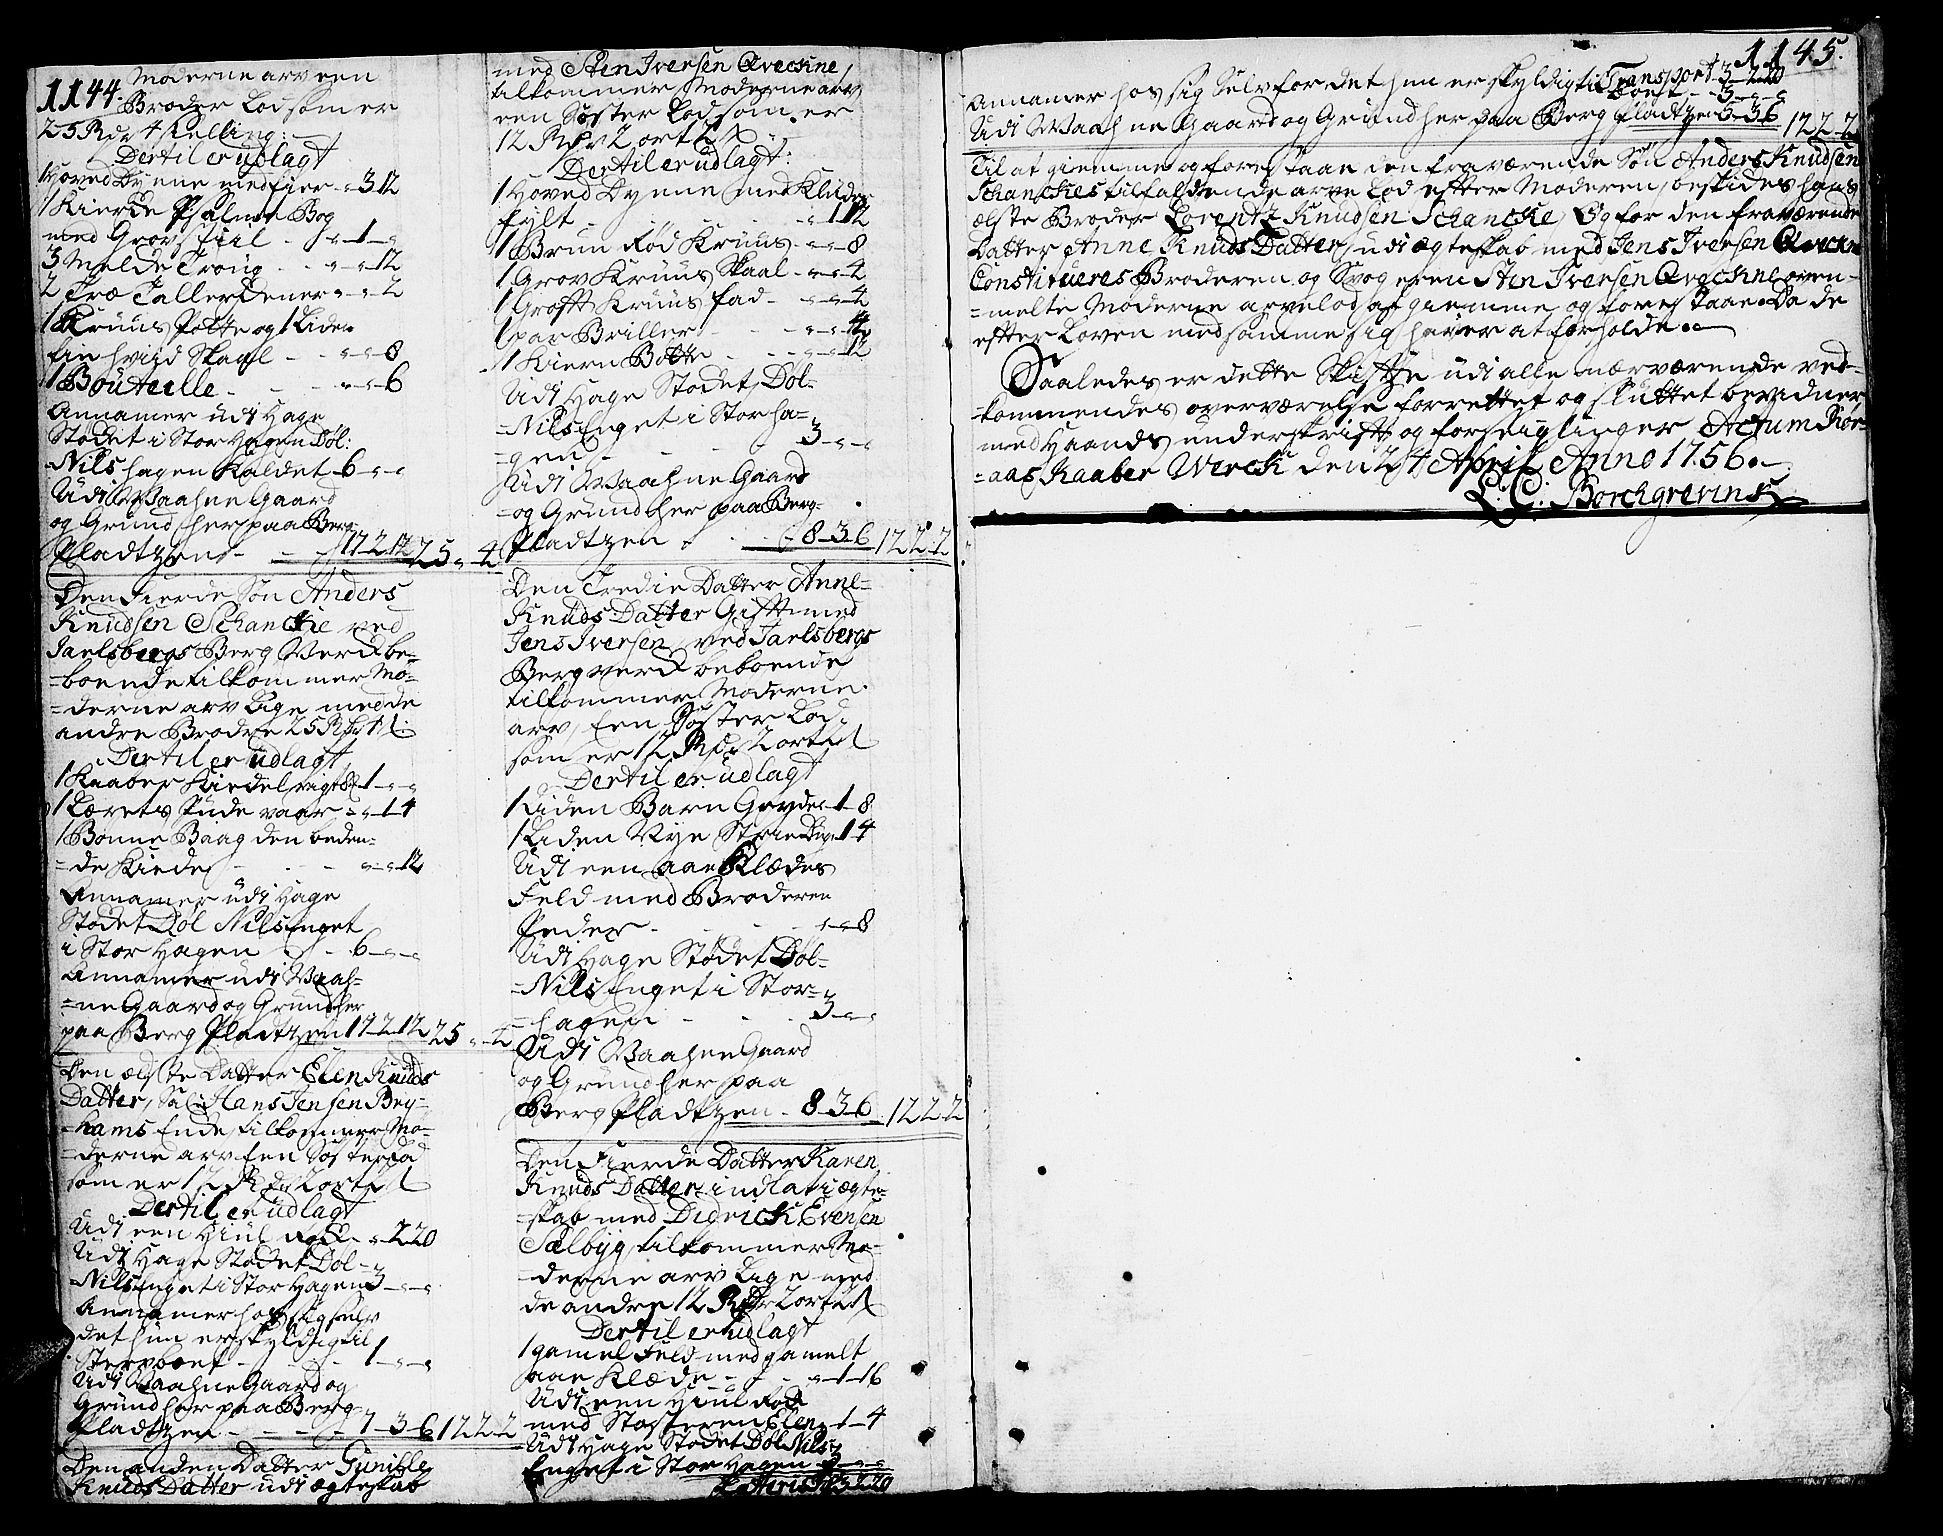 1144. Moderne arv een
Broder Lod som er
25 Rdr 4 skelling:
Dertil er udlagt
1 Hoved Dynne med fier - " 3 12
1 Kierde Psalme Bog
med Grov Stiil - " 1 "
3 Melde Troug - - " " 12
2 Træ Tallerkener " " 2
1 Kruus Potte og 1 Liden
fin hvid Skaal - - " " 8
1 Bouteille - - " " 6
Annamer udi Hage
Stødet i Stor Hagen Døl:
Nils hagen Kaldet 6 " "
Udi Vaahne Gaard
og Grund her paa Berg-
Pladtzen - - 17 2 12 25 " 4
Den Fierde Søn Anders
Knudsen Schancke ved
Jarlsbergs Berg Verck be-
=boende tilkommer Mo-
=derne arv Lige med de
andre Brødre 25 Rdr 4 s:
Dertil er udlagt
1 Kaaber Kiedel vigt 1 " "
1 Lærets Pude vaar - " 1 4
1 Bonne Baag den beden-
=de Kiede - - " " 12
Annamer udi Hage
Stødet Døl Nils Enget
i Stor Hagen - 6 " "
Annamer udi Vaah-
=ne Gaard og Grund her
paa Berg Pladtzen 17 2 12 25 " 4
Den ælste Datter Elen Knuds
Datter, Sal: Hans Jensen Bey-
=hams Encke, tilkommer Mo-
=derne arv Een Søster Lod
som er 12 Rdr 2 ort 2 s
Dertil er udlagt
Udi een Hiul Rock - " 2 20
Udi Hage Stødet Døl-
=Nils Enget i Stor Hagen 3 " "
Annamer hos sig selv
det hun er skyldig til
Stervboet - - 1 " "
Udi Vaahne Gaard og
Grund her paa Berg-
Pladtzen - - - 7 3 6 12 2 2
Den anden Datter Gunille
Knuds Datter udi ægteskab
med Sten Iversen Qveckne
tilkommer Moderne arv
een Søster Lod som er
12 Rdr 2 ort 2 s
Dertil er udlagt:
1 Hoved Dynne med Klude
fylt - - - " 1 12
1 Brun Rød Kruus - " " 8
1 Grov Kruus Skaal - " " 4
1 Groft Kruus fad - " " 4
1 par Briller - - " " 4
1 Kiern Bøtte - - " " 12
Udi Hage Stødet Døl-
=Nils Enget i Stor ha=
=gen - - - 3 " "
Udi Vaahne Gaard
=og Grund her paa Berg-
Pladtzen - - 8 3 6 12 2 2
Den Tredie Datter Anne-
Knuds Datter Gift med
Jens Iversen, ved Jarlsbergs
Bergverck beboende
tilkommer Moderne
arv, Een Søster Lod,
som er 12 Rdr 2 ort 2 s
Dertil er udlagt
1 Liden Barn Gryde 1 8
1 Liden Rye 1 4
Udi een aaeKlædes
Feld med Broderen
Peder - - - " " 8
Udi Hage Stødet Døl-
=Nils Enget i Stor-
=hagen - - 3 " "
Udi Vaahne Gaard
og Grund her paa
Berg Pladtzen - 8 3 6 12 2 2
Den Fierde Datter Karen
Knuds Datter indlat i ægte-
=skab med Didrick Evensen
Sælbyg, tilkommer Mo-
=derne arv Lige med
de andre 12 Rdr 2 ort 2 s
Dertil er udlagt
1 gamel Feld med gamelt
aaeKlæde - - " 1 16
Udi een Hiul Rock
med Søsteren Elen - 1 4
Udi Hage Stødet Døl Nils
Enget i Stor Hagen - 3 " "
Lateris 3 2 20
1145.
Transport 3 2 20
Annamer hos sig Selv for det hun er skyldig til Boet - - 3 " "
Udi Vaahne Gaard og Grund her paa Berg Pladtzen 5 3 6 12 2 2
Til at giemme og forestaae den fraværende Søn Anders Knudsen
Schanckes tilfaldende arve Lod efter Moderen, beskides hans
ælste Broder Lorentz Knudsen Schancke, Og for den fraværende
Datter Anne Knuds Datter, udi ægteskab med Jens Iversen Qveckne
Constitueres Broderen og Svogeren Sten Iversen Qveckne oven-
=melte Moderne arvelod at giemme og forestaae. Da de
efter Loven med samme sig haver at forholde.
Saaledes er dette Skiftte udi alle nærværende ved-
=kommendes overværelse forrettet og sluttet bevidner
med Haands underskrift og forseiglinger Actum Rør-
=aas Kaaber Werck den 24 April Anno 1756.
L. C: Borchgrevinck